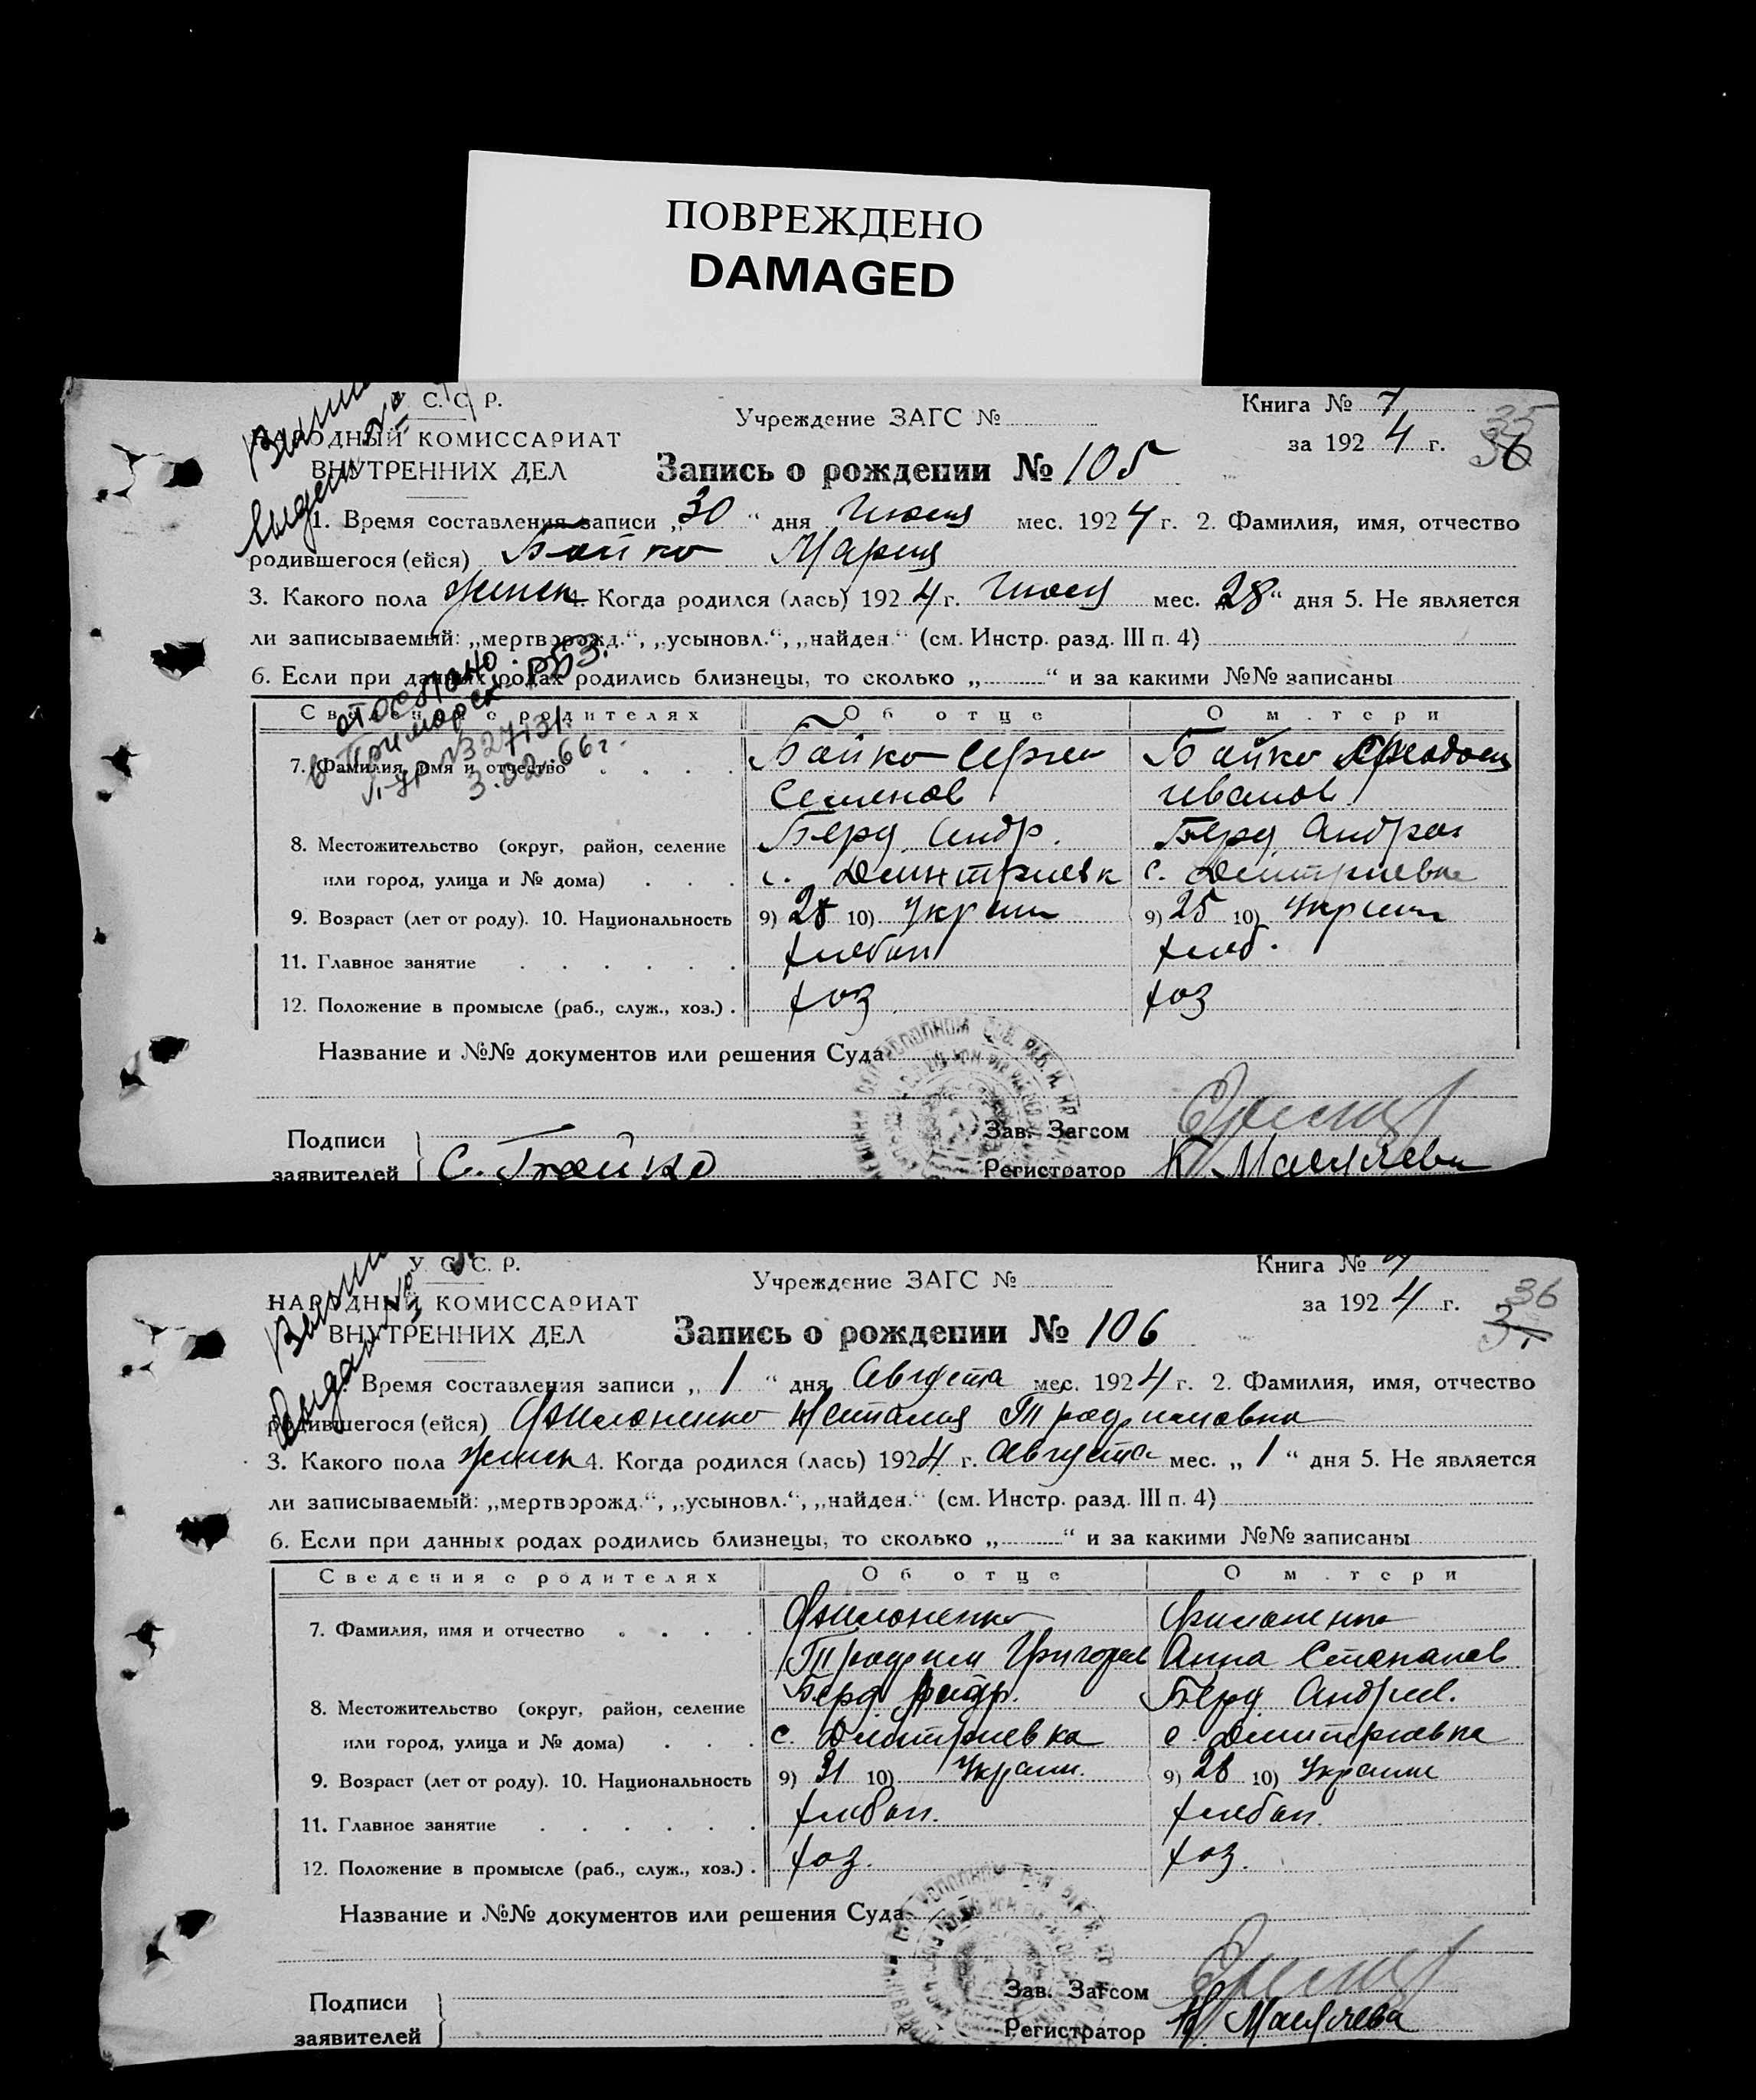 ПОВРЕЖДЕНО
DAMAGED
У. С. С. Р.
НАРОДНЫЙ КОМИССАРИАТ
ВНУТРЕННИХ ДЕЛ
Учреждение ЗАГС №
Книга № 7
за 1924 г.
35
36
Запись о рождении № 105
1. Время составления записи „30“ дня Июля мес. 1924 г. 2. Фамилия, имя, отчество
родившегося (ейся) Бойко Мария
3. Какого пола женск 4. Когда родился (лась) 1924 г. Июля мес. „28“ дня 5. Не является
ли записываемый: „мертворожд.“, „усыновл.“, „найден.“ (см. Инстр. разд. III п. 4)
6. Если при данных родах родились близнецы, то сколько „ “ и за какими №№ записаны
отослано
в Приморск. РБЗ.
3.02.66г.
Сведения о родителях Об отце О матери
7. Фамилия, имя и отчество Бойко Сергей Бойко Феодосия
Семенов Иванов
8. Местожительство (округ, район, селение Берд. Андр. Берд Андреев
или город, улица и № дома) с. Дмитриевк с. Дмитриевка
9. Возраст (лет от роду). 10. Национальность 9) 28 10) Украин 9) 25 10) Украин
11. Главное занятие хлебоп хлеб.
12. Положение в промысле (раб., служ., хоз.) хоз хоз
Название и №№ документов или решения Суда
Подписи
заявителей С. Бойко
Зав. Загсом
Регистратор К Масячева
У. С. С. Р.
НАРОДНЫЙ КОМИССАРИАТ
ВНУТРЕННИХ ДЕЛ
Учреждение ЗАГС №
Книга № 7
за 1924 г.
36
Запись о рождении № 106
1. Время составления записи „1“ дня Августа мес. 1924 г. 2. Фамилия, имя, отчество
родившегося (ейся) Филоненко Наталия Трофимовна
3. Какого пола женск 4. Когда родился (лась) 1924 г. Августа мес. „1“ дня 5. Не является
ли записываемый: „мертворожд.“, „усыновл.“, „найден.“ (см. Инстр. разд. III п. 4)
6. Если при данных родах родились близнецы, то сколько „ “ и за какими №№ записаны
Сведения о родителях Об отце О матери
7. Фамилия, имя и отчество Филоненко Филоненко
Трофим Григорьев Анна Степанов
8. Местожительство (округ, район, селение Берд. Андр. Берд. Андреев.
или город, улица и № дома) с. Дмитриевка с Дмитриевка
9. Возраст (лет от роду). 10. Национальность 9) 31 10) Украин. 9) 28 10) Украин
11. Главное занятие хлебоп. хлебоп.
12. Положение в промысле (раб., служ., хоз.) хоз. хоз.
Название и №№ документов или решения Суда
Подписи
заявителей
Зав. Загсом
Регистратор К Масячева